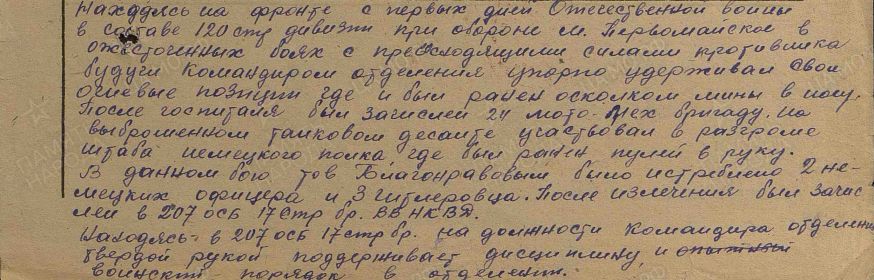 Находясь на фронте с первых дней Отечественной войны
в составе 120 стр дивизии при обороне м. Первомайское в
ожесточенных боях с превосходящими силами противника
будучи командиром отделения упорно удерживал свои
огневые позиции где и был ранен осколком мины в ногу.
После госпиталя был зачислен 24 мото-мех бригаду. на
выброшенном танковом десанте участвовал в разгроме
штаба немецкого полка, где был ранен пулей в руку.
В данном бою тов Благонравовым было истреблено 2 не-
мецких офицера и 3 гитлеровца. После излечения был зачис
лен в 207 осб 17 стр бр. ВВ НКВД.
Находясь в 207 осб 17 стр бр. на должности командира отделения
твердой рукой поддерживает дисциплину и опытный
воинский порядок в отделении.